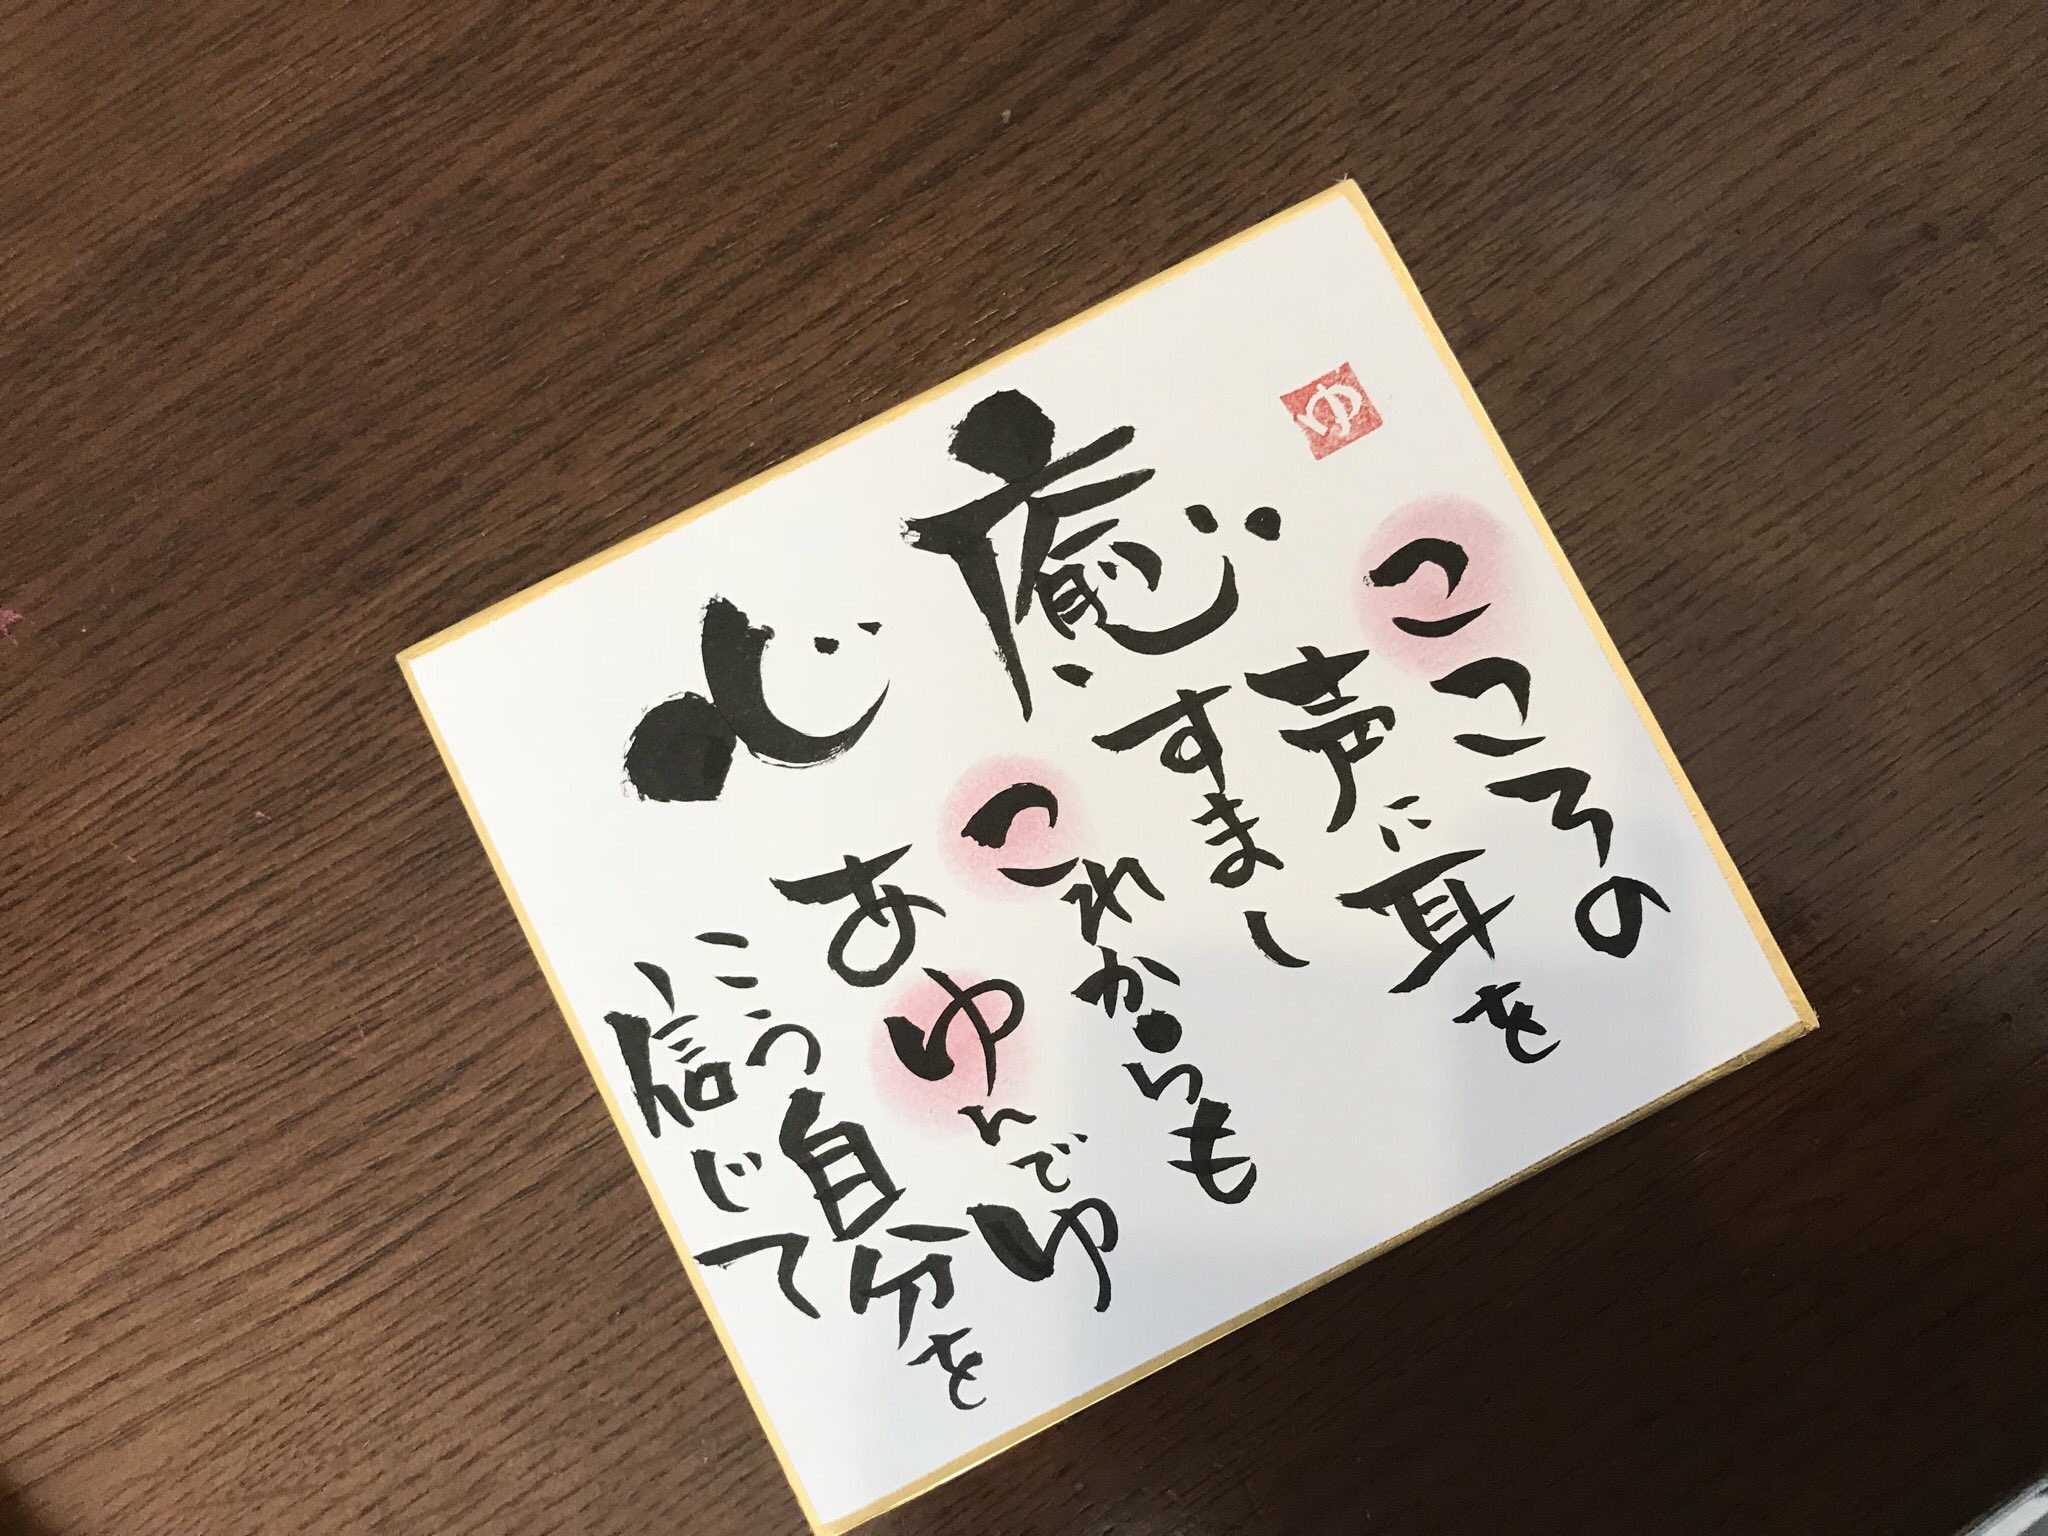 ゆ
こころの
声に耳を
すまし
癒心
これからも
あゆんでゆ
こう自分を
信じて